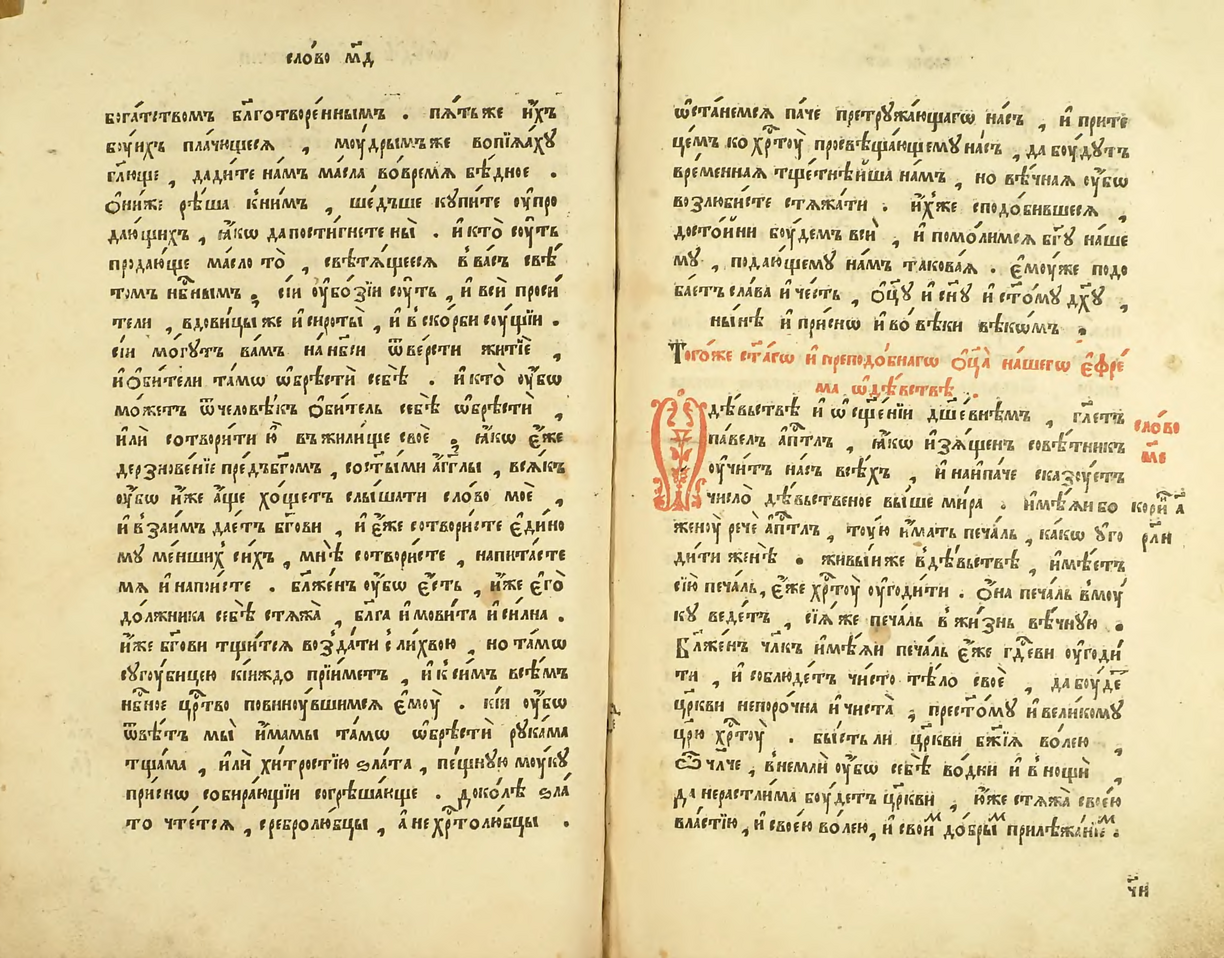 сло́во м҃д
бога́тствомъ бл҃готворе́ннымъ . пѧ́тьже и҆́хъ
бꙋ́ихъ пла́чющесѧ , мꙋ́дрымъже вопїѧ́хꙋ
гл҃юще , дади́те на́мъ ма́сла вовре́мѧ бѣ́дное .
Ѻ҆ни́же рѣ́ша кни́мъ , ше́дъше кꙋпи́те ѹ҆про
даю́щихъ , ꙗ҆́кѡ дапости́гнете ны̀ . и҆кто̀ сꙋ́ть
продаю́ще ма́сло то̀ , свѣтѧ́щеесѧ в́ва́съ свѣ́
томъ нбⷭ҇нымъ . сі́и ѹ҆бо́зїи сꙋ́ть , и҆всѝ проси́
тели , вдови́цы же и҆сироты̀ , и҆в́ско́рби сꙋ́щїи .
сі́и мо́гꙋтъ ва́мъ на́нб҃си ѿве́рсти житїѐ ,
и҆ѻ҆би́тели та́мѡ ѡ҆брѣстѝ себѣ̀ . и҆кто̀ ѹ҆́бѡ
мо́жетъ ѿчеловѣ́къ ѻ҆би́тель себѣ̀ ѡ҆брѣстѝ ,
и҆лѝ сотвори́ти ю҆̀ въжили́ще своѐ . ꙗ҆́кѡ є҆́же
дерзнове́нїе предъбг҃омъ , сост҃ы́ми а҆́гг҃лы , всѧ́къ
ѹ҆́бѡ и҆́же а҆́ще хо́щетъ слы́шати сло́во моѐ ,
и҆в́за́имъ дае́тъ бг҃ови , и҆є҆́же сотвори́сте є҆ди́но
мꙋ ме́ншихъ си́хъ , мнѣ̀ сотвори́сте , напита́сте
мѧ и҆напои́сте . бл҃же́нъ ѹ҆́бѡ є҆́сть , и҆́же є҆го̀
должника̀ себѣ̀ стѧжа̀ , бл҃га и҆мови́та и҆си́лна .
и҆́же бг҃ови тщи́тсѧ возда́ти с́ли́хвою , нота́мѡ
сꙋгꙋ́бицею кі́иждо прїи́метъ , и҆ќси́мъ всѣ́мъ
нбⷭ҇ное црⷭ҇тво повинꙋ́вшимсѧ є҆мꙋ̀ . кі́и ѹ҆́бѡ
ѿвѣ́тъ мы̀ и҆́мамы та́мѡ ѡ҆брѣстѝ рꙋка́ма
тща́ма , и҆лѝ хи́тростїю ѕла́та , пе́щнꙋю мꙋ́кꙋ
при́снѡ собира́ющїи согрѣша́юще . доко́лѣ ѕла́
то чте́тсѧ , сребролю́бцы , а҆не хрⷭ҇толю́бцы .
ѡ҆ста́немсѧ па́че претрꙋжа́ющагѡ на́съ , и҆ прите
це́мъ ко хрⷭ҇тꙋ̀ просвѣща́ющемꙋ на́съ , да бꙋ́дꙋтъ
вре́меннаѧ тщетнѣ́йша на́мъ , но вѣ́чнаѧ ѹ҆́бѡ
возлю́бисте стѧжа́ти . и҆́хже сподо́бившесѧ ,
досто́йни бꙋ́демъ всѝ , и҆ помо́лимсѧ бг҃ꙋ на́ше
мꙋ , подаю́щемꙋ на́мъ такова́ѧ . є҆мꙋ́же подо
ба́етъ сла́ва и҆ че́сть , ѻ҆ц҃ꙋ̀ и҆ сн҃ꙋ и҆ ст҃о́мꙋ дх҃ꙋ ,
ны́нѣ и҆ при́снѡ и҆ во́ вѣки вѣкѡ́мъ .
Того́же ст҃а́гѡ и҆ преподо́бнагѡ ѻ҆ц҃а̀ на́шегѡ є҆фре́
ма . ѡ҆дѣ́вствѣ .
Ѡ дѣ́вьствѣ и҆ ѡ҆ сщ҃е́нїи дш҃е́внѣмъ , гл҃етъ
сло́во м҃е
па́велъ а҆пⷭ҇тлъ , ꙗ҆́кѡ и҆зѧ́щенъ совѣ́тникъ
ѹ҆чи́тъ на́съ всѣ́хъ , и҆ наипа́че ска́зꙋетъ
число̀ дѣ́вьственое вы́ше ми́ра . и҆мѣ́ѧи бо
кори́нⷴ҇ а҃
женꙋ̀ речѐ а҆пⷭ҇тлъ , тꙋ́ю и҆́мать печа́ль , ка́кѡ ѹ҆го
рл҃и
ди́ти женѣ̀ . живы́иже в́дѣ́вьствѣ , и҆мѣ́етъ
сїю̀ печа́ль, є҆́же хрⷭ҇тꙋ̀ ѹ҆годи́ти . ѻ҆́на печа́ль в́мꙋ́
кꙋ веде́тъ , сїѧ́ же печа́ль в́ жи́знь вѣ́чнꙋю .
Бл҃же́нъ чл҃къ и҆мѣ́ѧи печа́ль є҆́же гдⷭ҇еви ѹ҆годи́
ти , и҆ соблюде́тъ чи́сто тѣ́ло своѐ , да бꙋ́деⷮ
цр҃кви непоро́чна и҆чиста̀ , прест҃о́мꙋ и҆ вели́комꙋ
цр҃ю̀ хрⷭ҇тꙋ̀ . бы́сть ли цр҃кви бж҃їѧ во́лею ,
Ѽ чл҃че , внемлѝ ѹ҆́бѡ себѣ̀ во́дни и҆ в́ нощѝ ,
да нерастли́ма бꙋ́детъ цр҃кви , ю҆́же стѧжа̀ свое́ю
вла́стїю , и҆ свое́ю во́лею, и҆ свои́ⷨ до́брыⷨ прилѣжа́нїеⷨ .
ч҃и